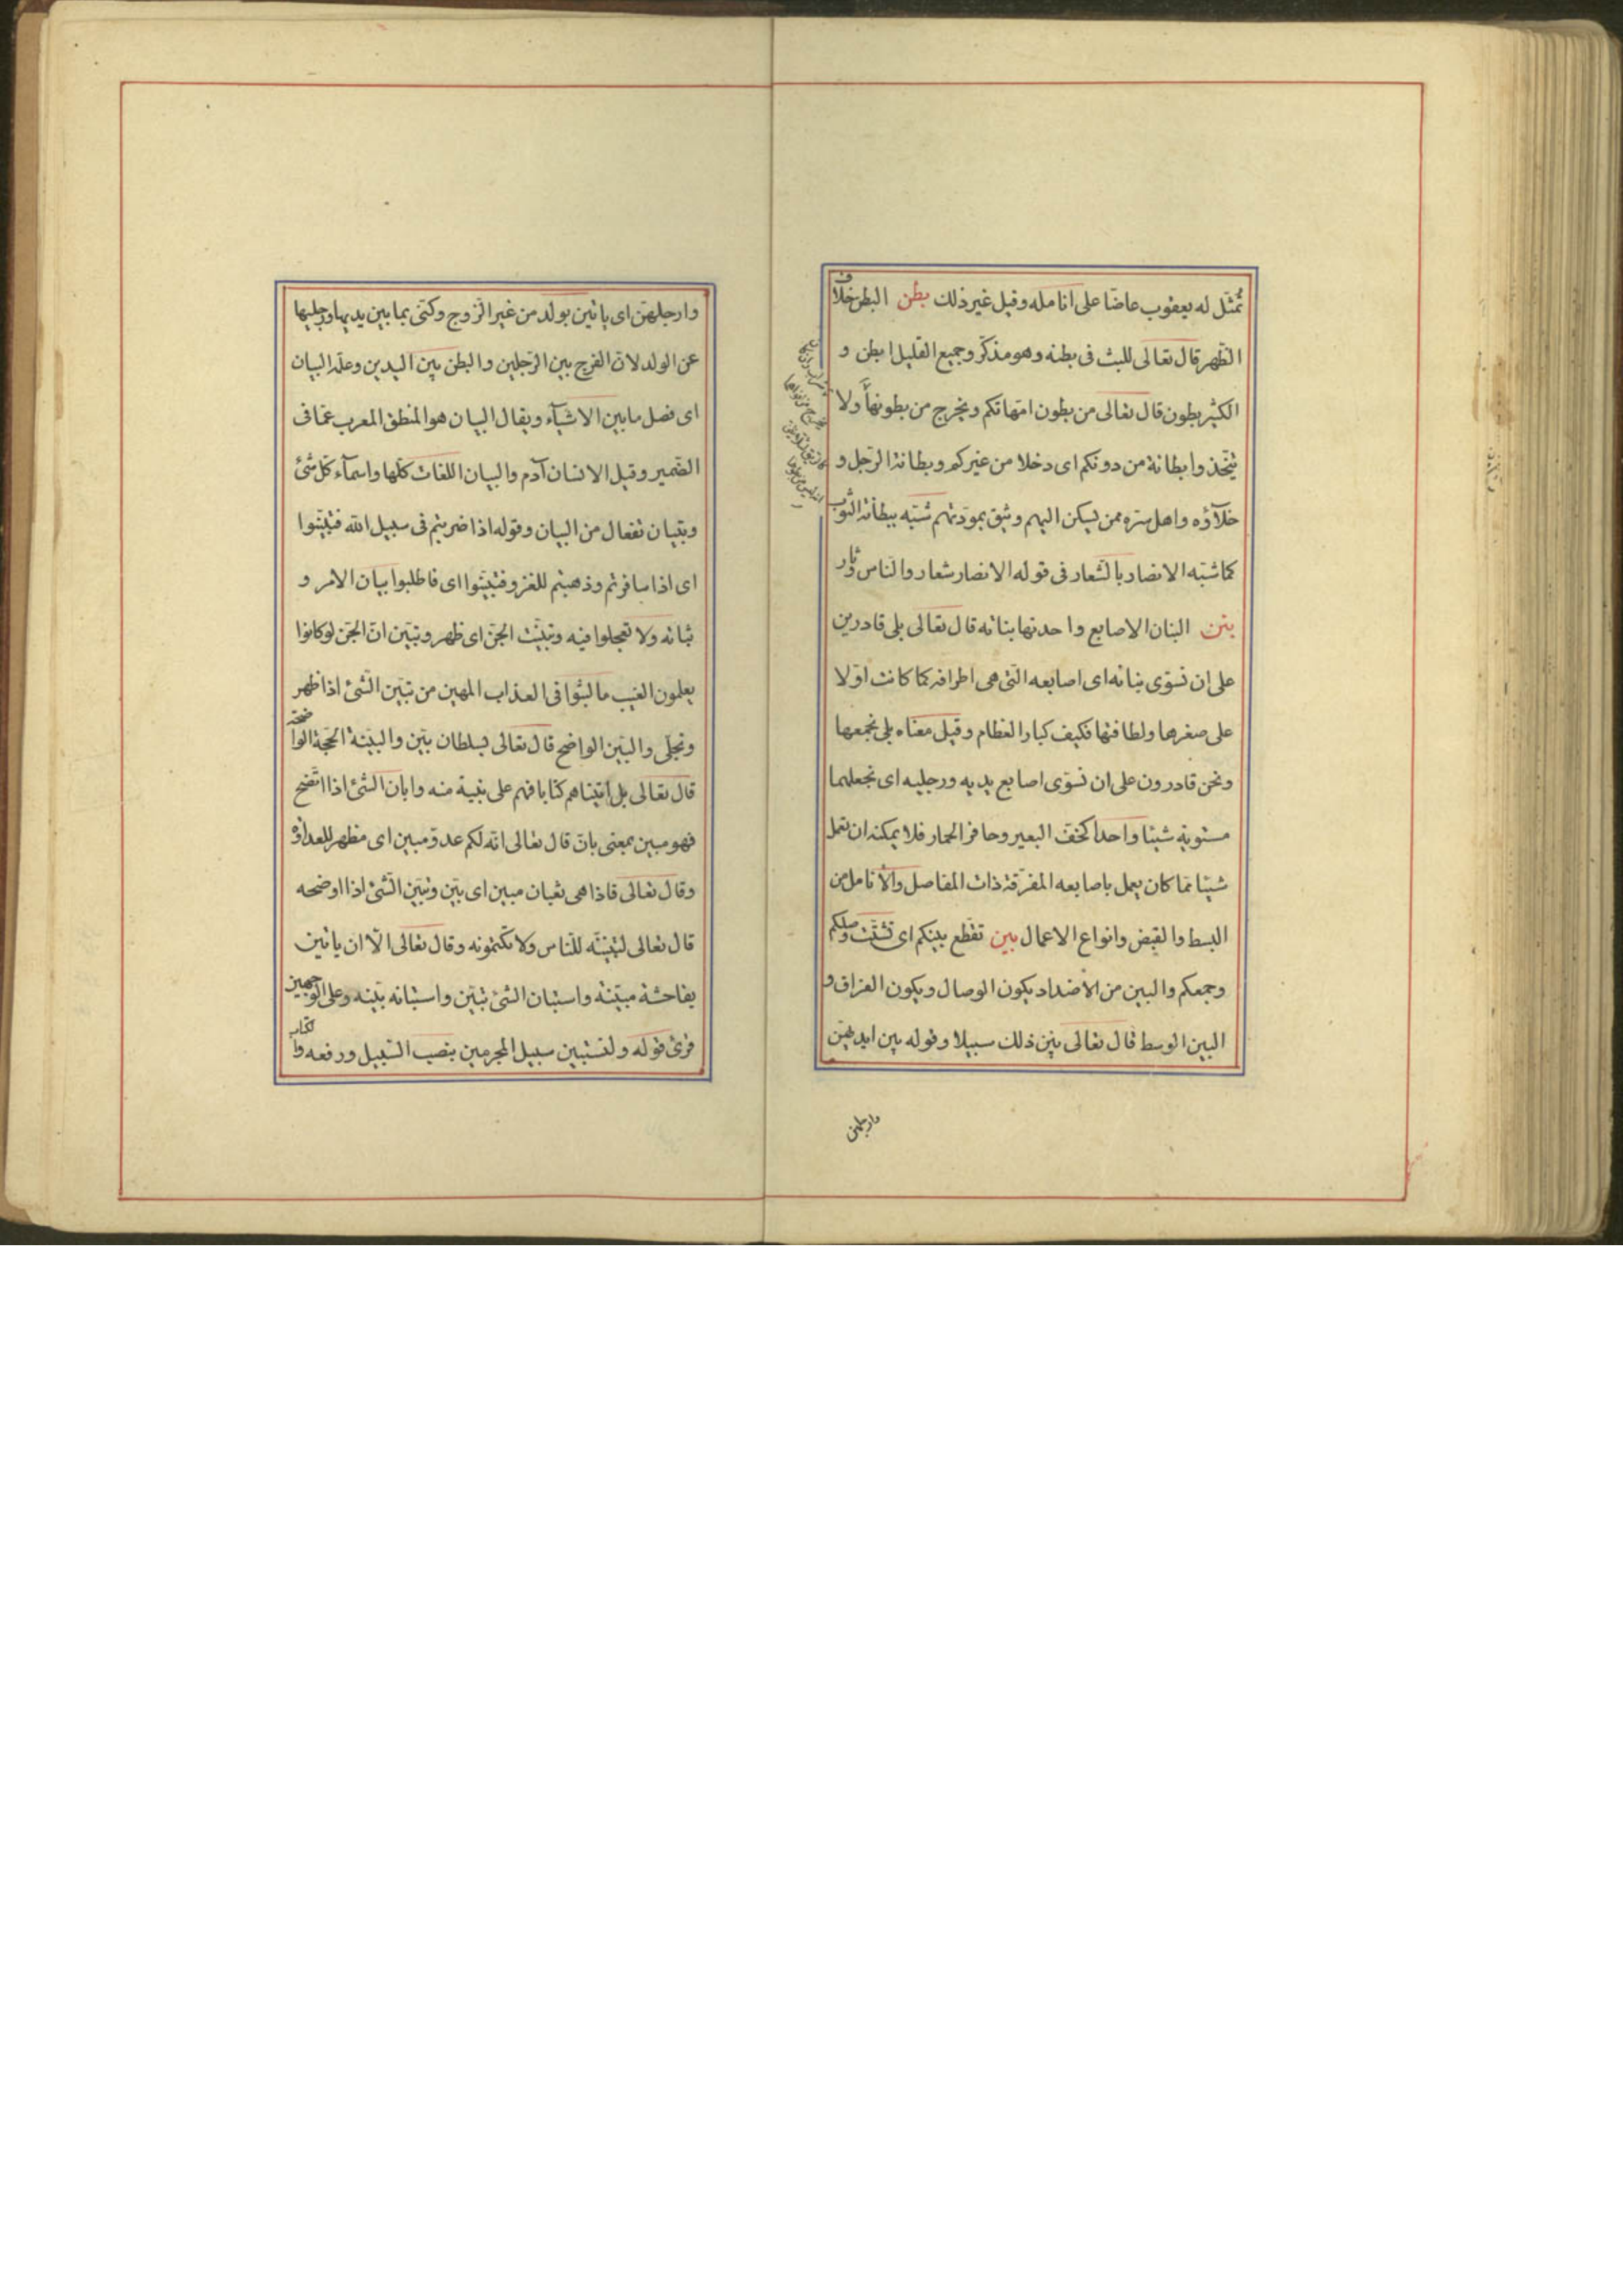 تمثّل له يعقوب عاضّا على انامله وقيل غير ذلك بطن البطن خلاف
الظّهر قال تعالى للبث فى بطنه وهو مذكّر وجميع القليل ابطن و
الكثير بطون قال تعالى من بطون امّهاتكم ويخرج من بطونها ولا
تتّخذوا بطانة من دونكم اى دخلا من غيركم وبطانة الرّجل و
خلآؤه واهل سرّه ممن يسكن اليهم ويثق بمودّتهم شبّه ببطانة الثّوب
كما شبّه الانصار بالشّعار فى قوله الانصار شعار والنّاس دثار
بنن البنان الاصابع واحدتها بنانه قال تعالى بلى قادرين
على ان نسوّى بنانه اى اصابعه الّتى هى اطرافه كما كانت اوّلا
على صغرها ولطافتها فكيف كبار العظام وقيل معناه بلى نجمعها
ونحن قادرون على ان نسوّى اصابع يديه ورجليه اى نجعلهما
مستوية شيئا واحدا كخفّ البعير وحافر الحمار فلا يمكنه ان يعمل
شيئا ممّا كان يعمل باصابعه المفرّقة ذات المفاصل والانامل من
البسط والقبض وانواع الاعمال بين تقطّع بينكم اى تشتّت وصلكم
وجمعكم والبين من الاضداد يكون الوصال ويكون الفراق و
البين الوسط قال تعالى بين ذلك سبيلا وقوله بين ايديهنّ
وارجلهن
وارجلهنّ اى ياتين بولد من غير الزّوج وكنّى بما بين يديها ورجليها
عن الولد لانّ الفرج بين الرّجلين والبطن بين اليدين وعلّمه البيان
اى فصل ما بين الاشيآء ويقال البيان هو المنطق المعرب عمّا فى
الضّمير وقيل الانسان آدم والبيان اللغات كلّها واسمآء كلّ شئ
وتبيان تفعال من البيان وقوله اذا ضربتم فى سبيل الله فتبيّنوا
اى اذا سافرتم وذهبتم للغزو فتبيّنوا اى فاطلبوا بيان الامر و
ثباته ولا تعجلوا فيه وتبيّنت الجنّ اى ظهر وتبيّن انّ الجنّ لو كانوا
يعلمون الغيب ما لبثوا فى العذاب المهين من تبيّن الشّئ اذا ظهر
وتجلّى والبيّن الواضح قال تعالى بسلطان بيّن والبيّنة الحجّة الواضحة
قال تعالى بل اتيناهم كتابا فهم على بيّنة منه وابان الشّئ اذا اتّضح
فهو مبين بمعنى بان قال تعالى انّه لكم عدوّ مبين اى مظهر للعداوة
وقال تعالى فاذا هى ثعبان مبين اى بيّن وتبيّن الشّئ اذا اوضحه
قال تعالى لتبيّنّه للنّاس ولا تكتمونه وقال تعالى الّا ان ياتين
بفاحشة مبيّنة واستبان الشّئ تبيّن واستبانه بيّنه وعلى الوجهين
قرئ قوله ولتستبين سبيل المجرمين بنصب السّبيل ورفعه والكتاب